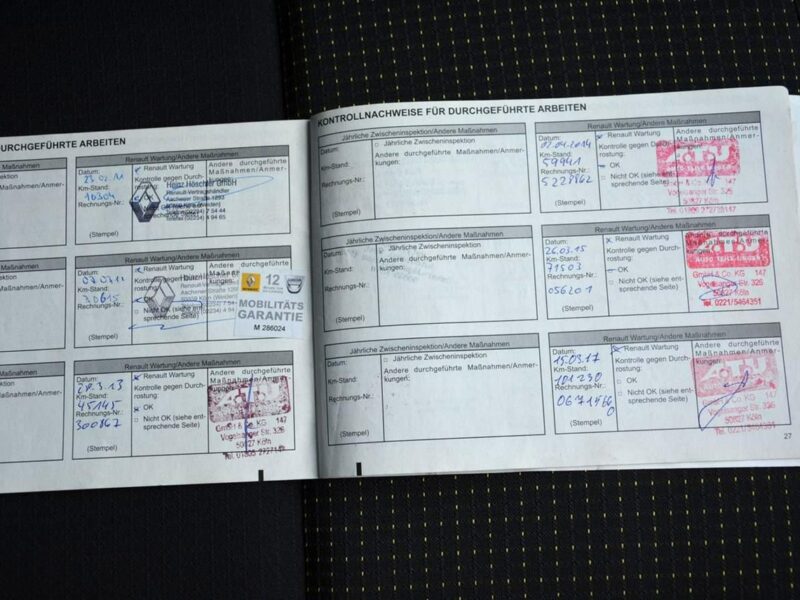 DURCHGEFÜHRTE ARBEITEN
Maßnahmen
Renault Wartung/Andere Maßnahmen
Datum:
Km-Stand:
10304
Rechnungs-Nr.:
(Stempel)
Renault Wartung
Kontrolle gegen Durchrostung:
OK
Andere durchgeführte Maßnahmen/Anmer-
Heinz Höschler GmbH
Renault-Vertragshändler
Aachener Straße 1253
Maßnahmen
Renault Wartung/Andere Maßnahmen
Datum:
Km-Stand:
30615
Rechnungs-Nr.:
(Stempel)
Renault Wartung
Kontrolle gegen Durchrostung:
Nicht OK (siehe entsprechende Seite)
12
MOBILITÄTS
GARANTIE
M 286024
Maßnahmen
Renault Wartung/Andere Maßnahmen
Datum:
28.3.13
Km-Stand:
45145
Rechnungs-Nr.:
300867
(Stempel)
Renault Wartung
Kontrolle gegen Durchrostung:
OK
Nicht OK (siehe entsprechende Seite)
Andere durchgeführte Maßnahmen/Anmer-
GmbH & Co. KG 147
Vogelsanger Str. 326
50827 Köln
KONTROLLNACHWEISE FÜR DURCHGEFÜHRTE ARBEITEN
Jährliche Zwischeninspektion/Andere Maßnahmen
Datum:
Km-Stand:
Rechnungs-Nr.:
(Stempel)
Jährliche Zwischeninspektion
Andere durchgeführte Maßnahmen/Anmerkungen:
Renault Wartung/Andere Maßnahmen
Datum:
02.04.2014
Km-Stand:
59941
Rechnungs-Nr.:
5228862
(Stempel)
Renault Wartung
Kontrolle gegen Durchrostung:
OK
Nicht OK (siehe entsprechende Seite)
Andere durchgeführte Maßnahmen/Anmerkungen:
50827 Köln
Jährliche Zwischeninspektion/Andere Maßnahmen
Datum:
Km-Stand:
Rechnungs-Nr.:
(Stempel)
Jährliche Zwischeninspektion
Andere durchgeführte Maßnahmen/Anmerkungen:
Renault Wartung/Andere Maßnahmen
Datum:
26.03.15
Km-Stand:
71503
Rechnungs-Nr.:
056201
(Stempel)
Renault Wartung
Kontrolle gegen Durchrostung:
OK
Nicht OK (siehe entsprechende Seite)
A.T.U
AUTO TEILE UNGER
GmbH & Co. KG 147
Vogelsanger Str. 326
50827 Köln
Tel. 0221/5464351
Jährliche Zwischeninspektion/Andere Maßnahmen
Datum:
Km-Stand:
Rechnungs-Nr.:
(Stempel)
Jährliche Zwischeninspektion
Andere durchgeführte Maßnahmen/Anmerkungen:
Renault Wartung/Andere Maßnahmen
Datum:
15.03.17
Km-Stand:
101230
Rechnungs-Nr.:
(Stempel)
Renault Wartung
Kontrolle gegen Durchrostung:
OK
Nicht OK (siehe entsprechende Seite)
Andere durchgeführte Maßnahmen/Anmerkungen:
GmbH & Co. KG 147
Vogelsanger Str. 326
50827 Köln
Tel. 0221/5464351
27